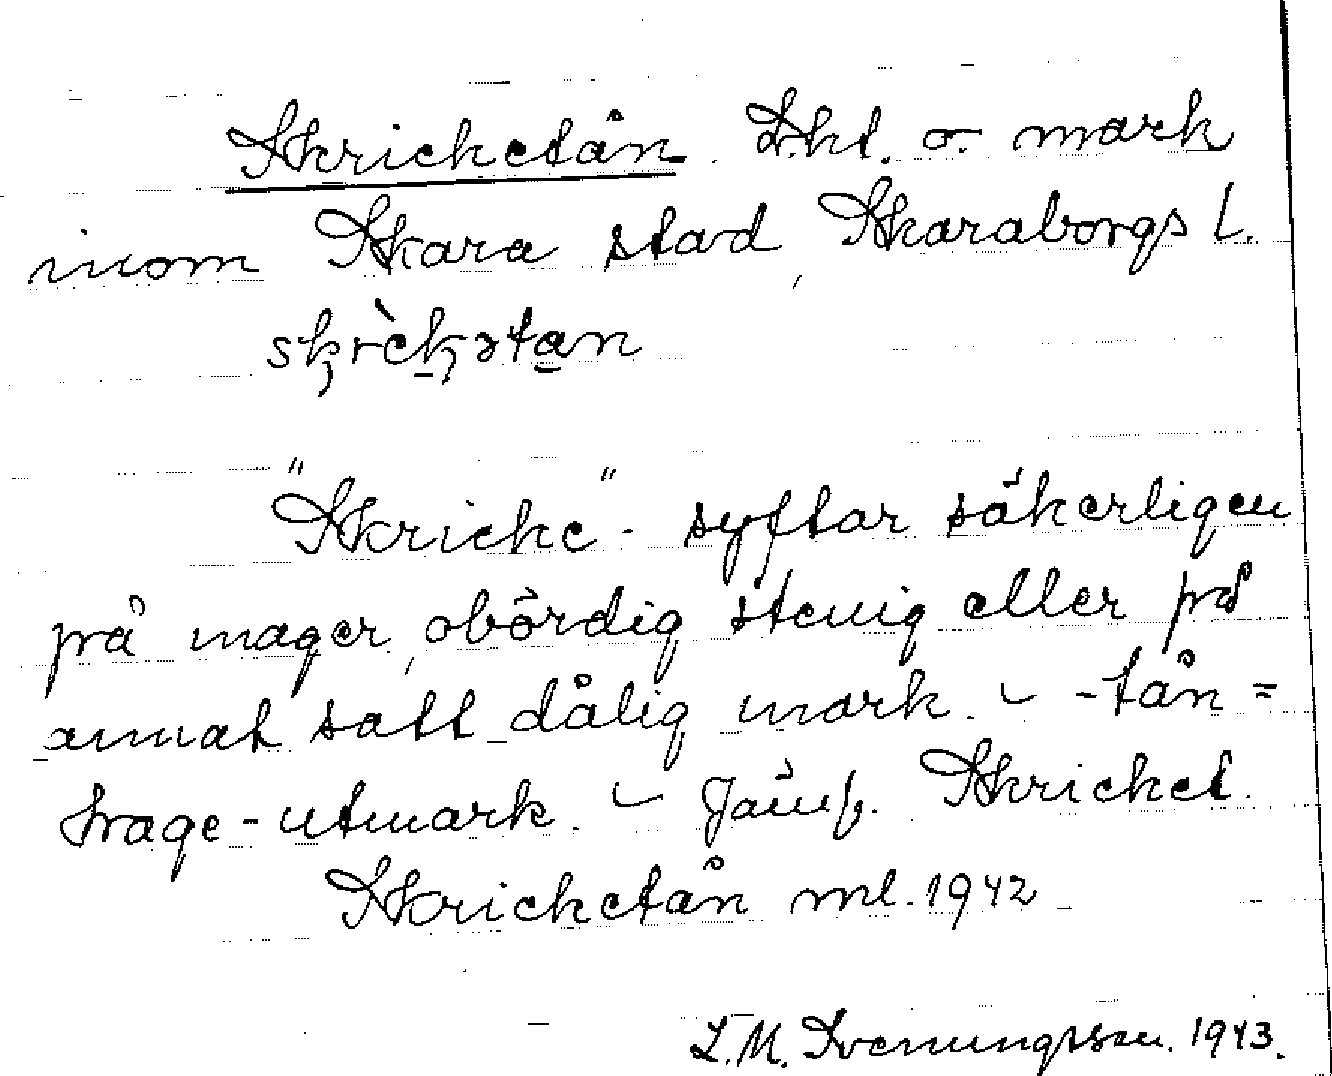 Skricketån. Lht. o. mark
inom Skara stad, Skaraborgs l.
skrèkətan
"Skricke"- syftar säkerligen
på mager, obördig stenig eller på
annat satt dålig mark. – -tån =
hage-utmark. – Jämf. Skricket.
Skricketån ml. 1942
L.M. Svenungsson. 1943.